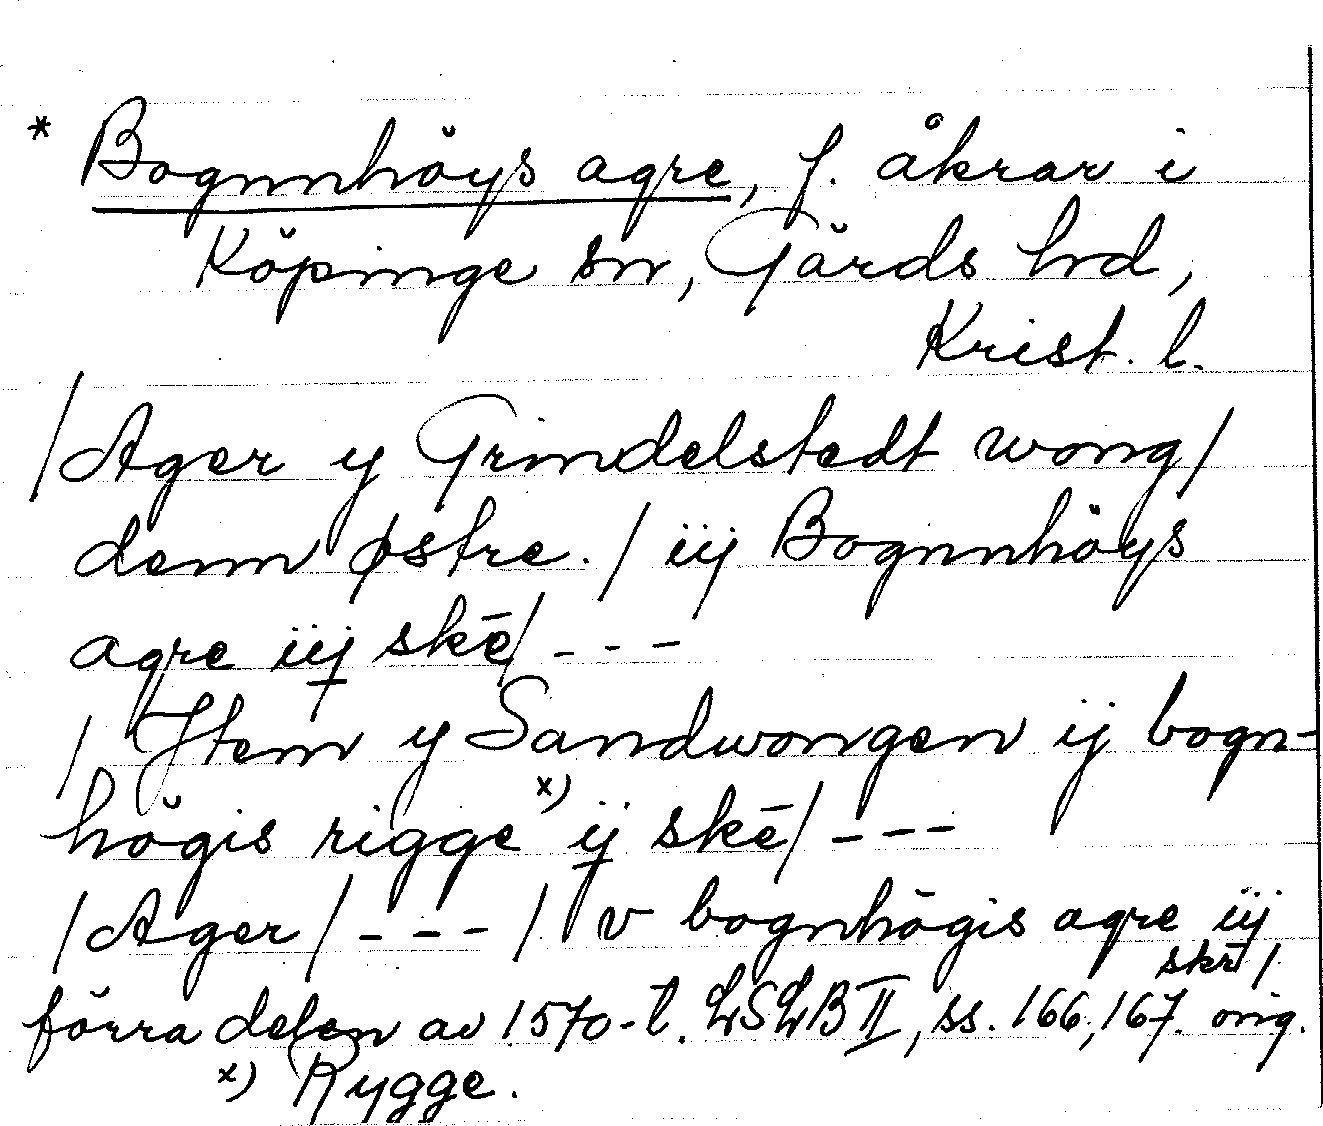 * Bognnhöys agre, f. åkrar i
Köpinge sn, Gärds hd,
Krist. l.
/Ager y Grindelstedt wong/
denn østre. / iij Bognnhöys
agre iij skē/ - - -
/ Jtem y Sandwongen ij bogn-
högis rigge x) ij skē/ - - -
/Ager/ - - - / v bognhögis agre iij
skr /
förra delen av 1570-t. LSLB II, ss. 166, 167. orig.
x) Rygge.